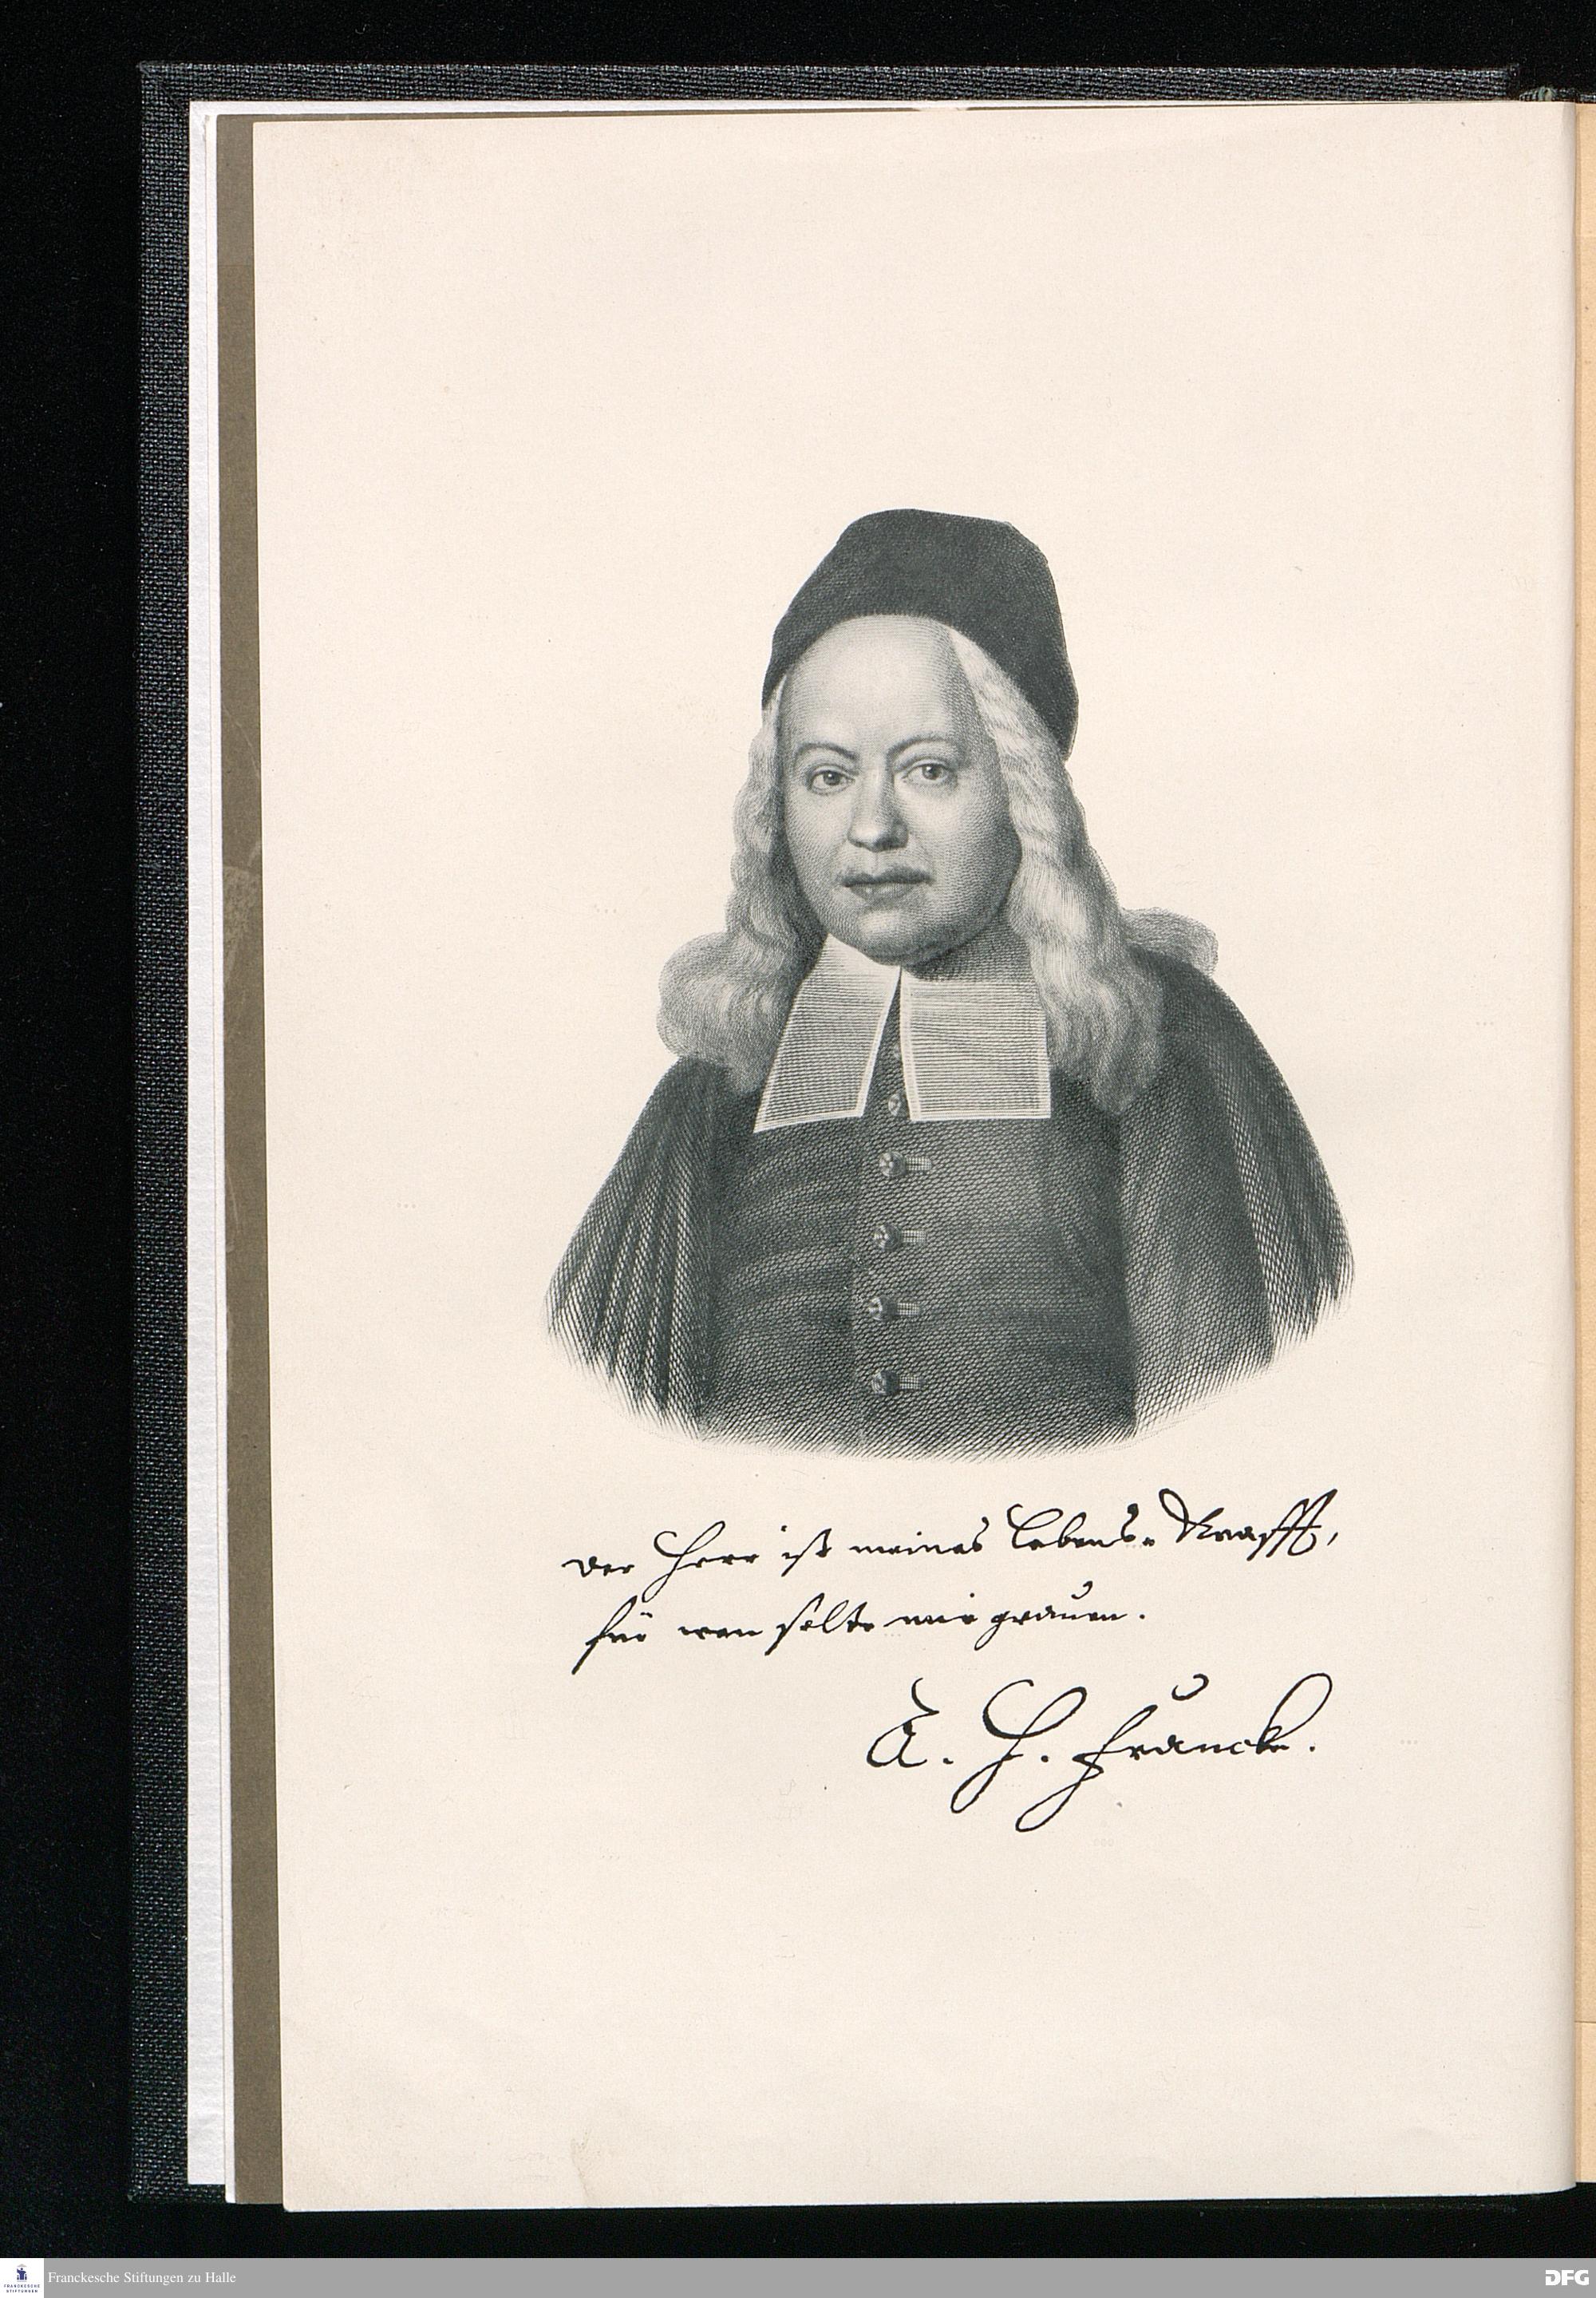 Der Herr ist meines Lebens-Krafft,
für wem solte mir grauen.
A. H. Francke.
FRANCKESCHE
STIFTUNGEN
Franckesche Stiftungen zu Halle
DFG